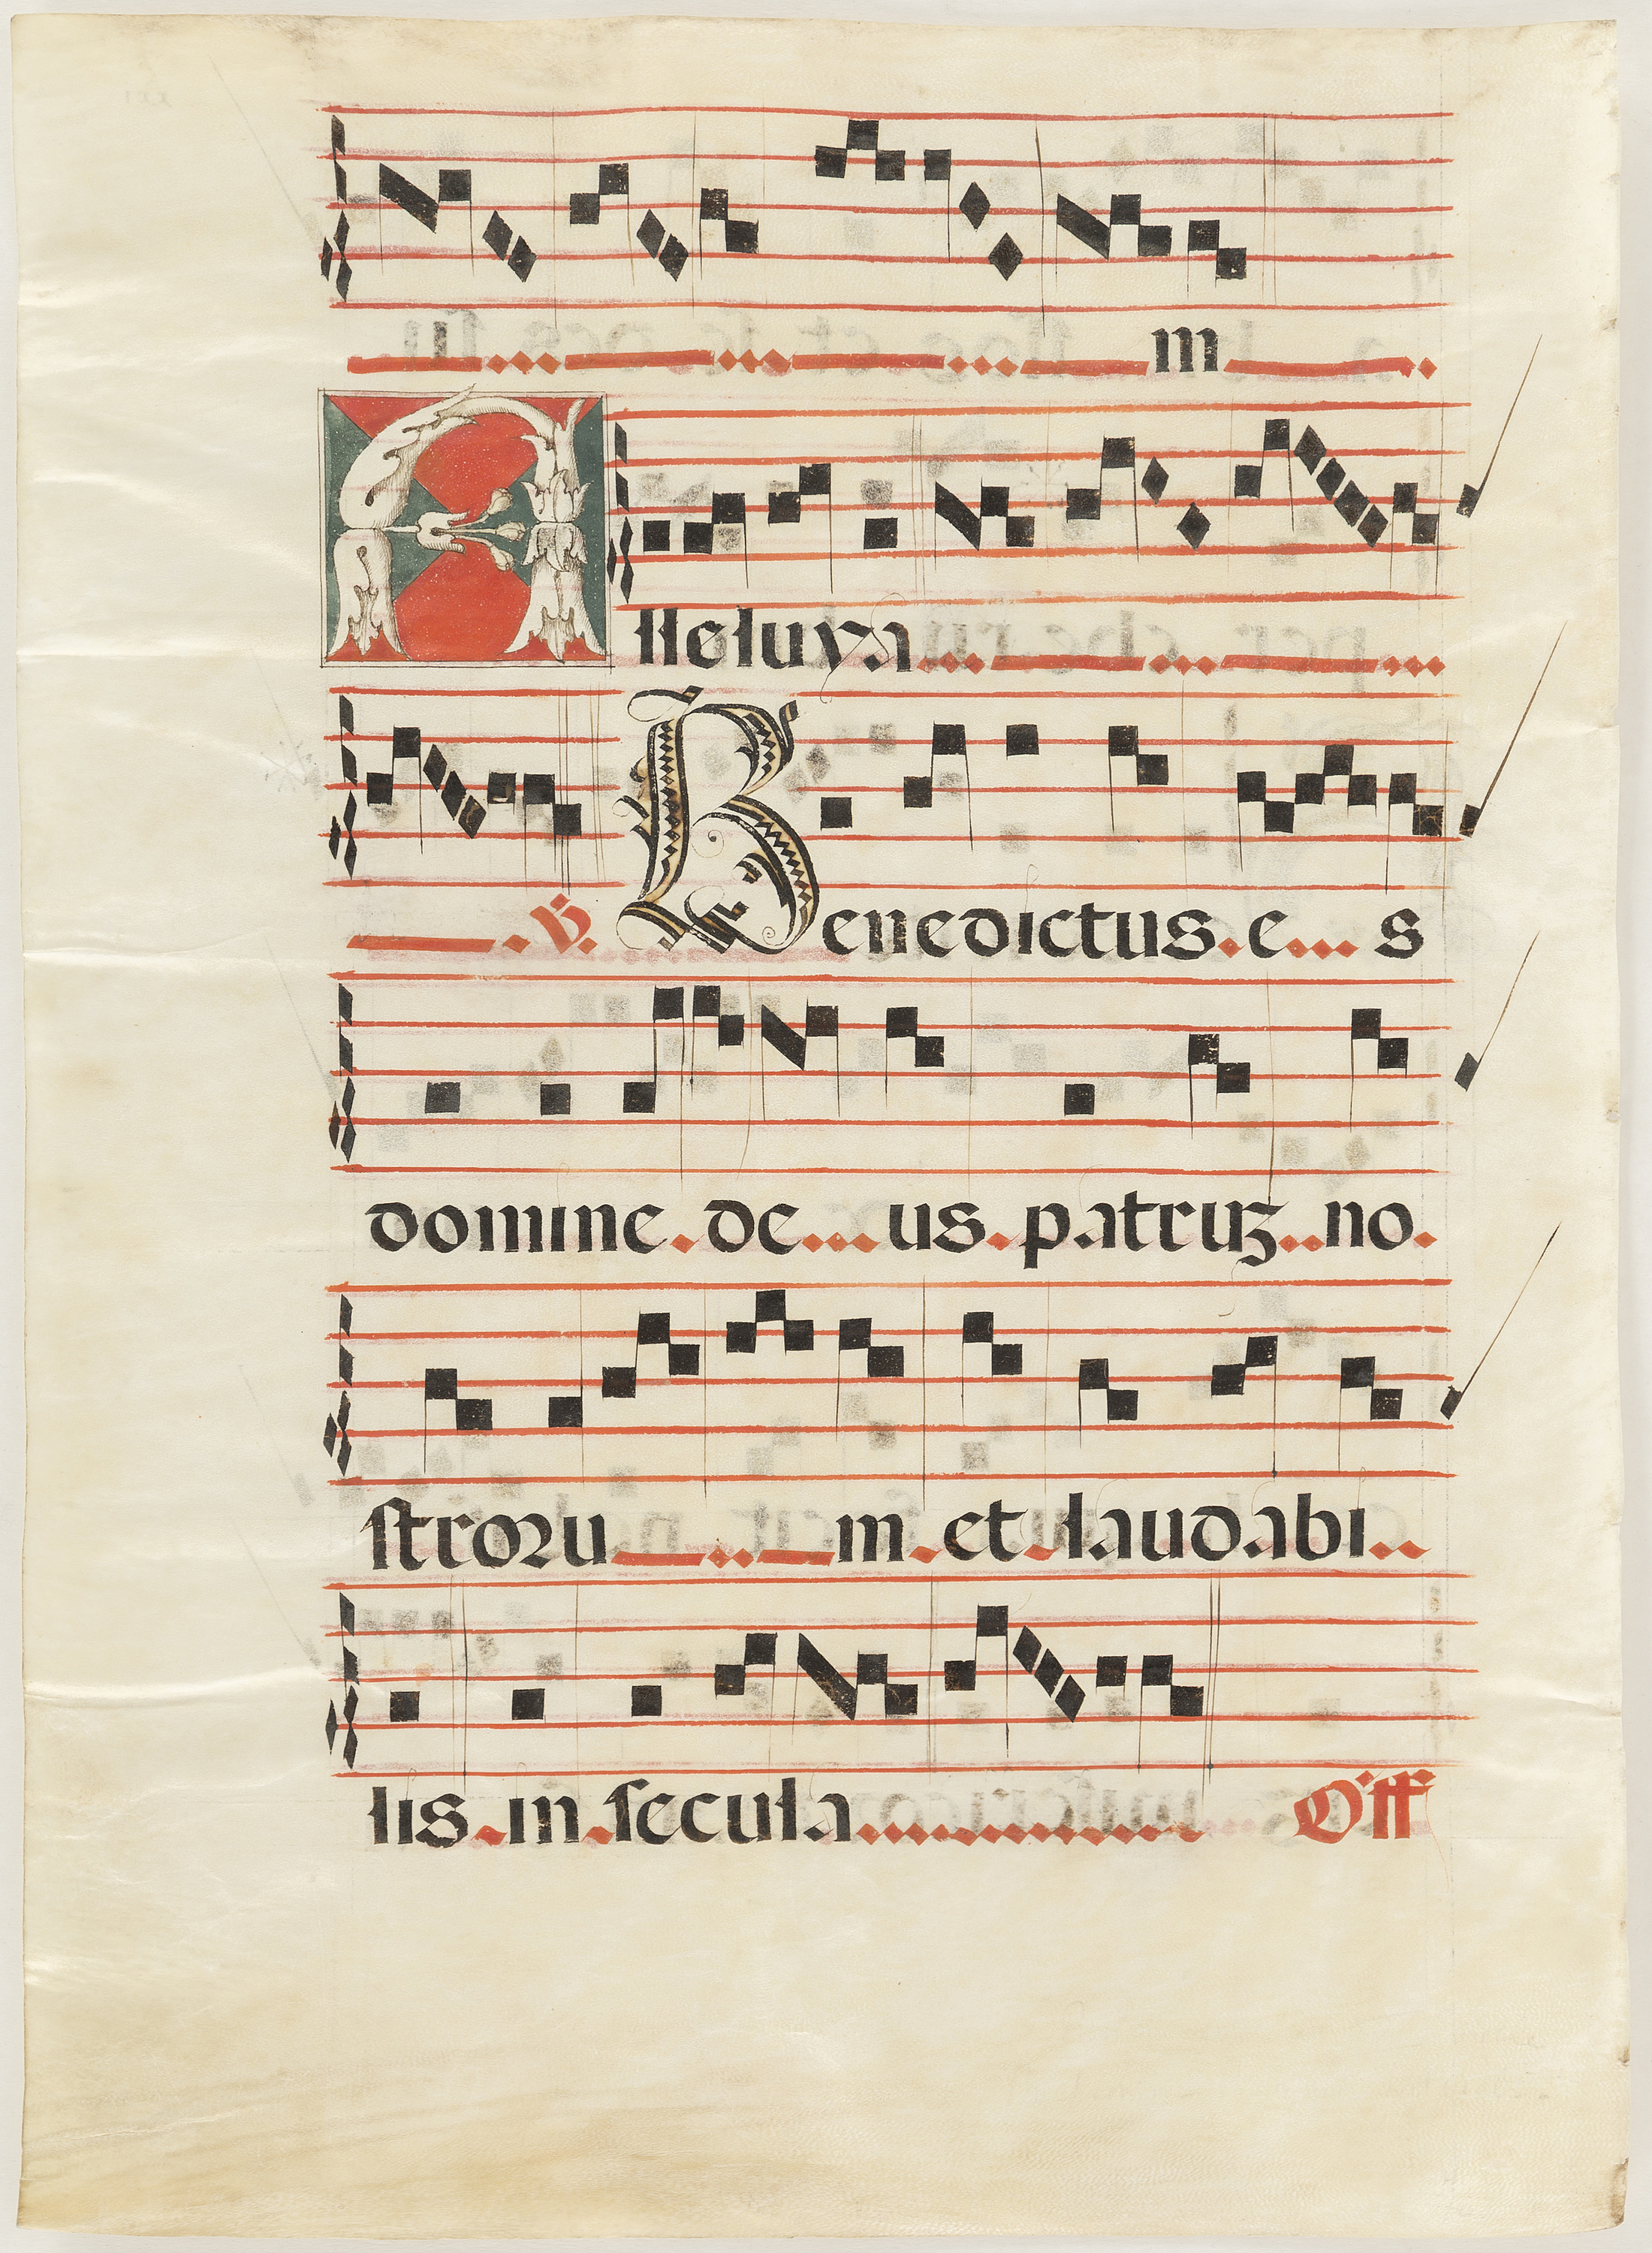 m
Alleluya
℣. Benedictus e s
domine de us patruꝫ no
ſtroꝛu m et laudabi
lis in ſecula Off